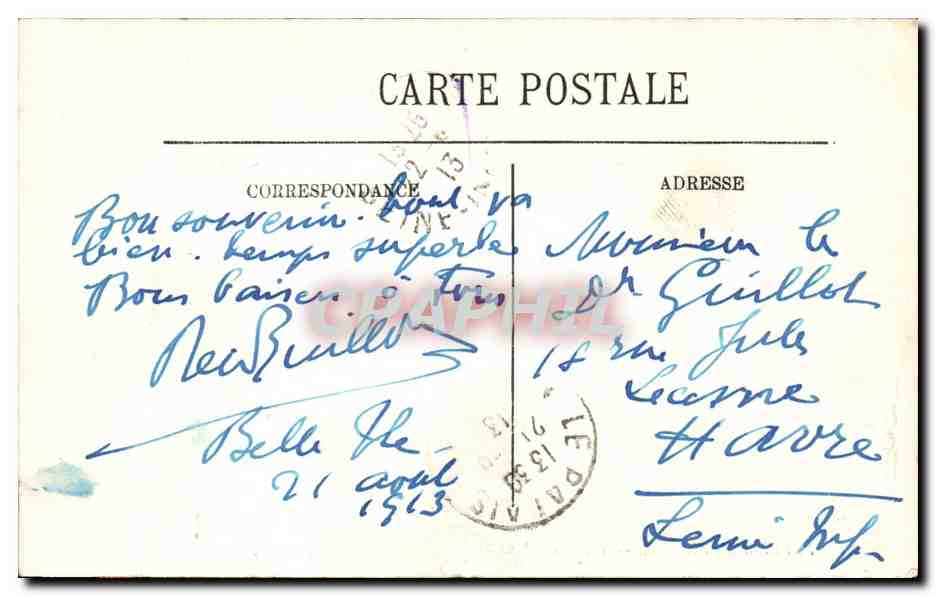 CARTE POSTALE
CORRESPONDANCE
Bon souvenir. tout va
bien. temps superbe
Bons baisers à tous
Guillot
Belle Ile
21 août
1913
ADRESSE
Monsieur le
Dr Guillot
18 rue Jules
Lecesne
Havre
Seine Infre
LE PALAIS
13 30
21
13
CARAPHIL